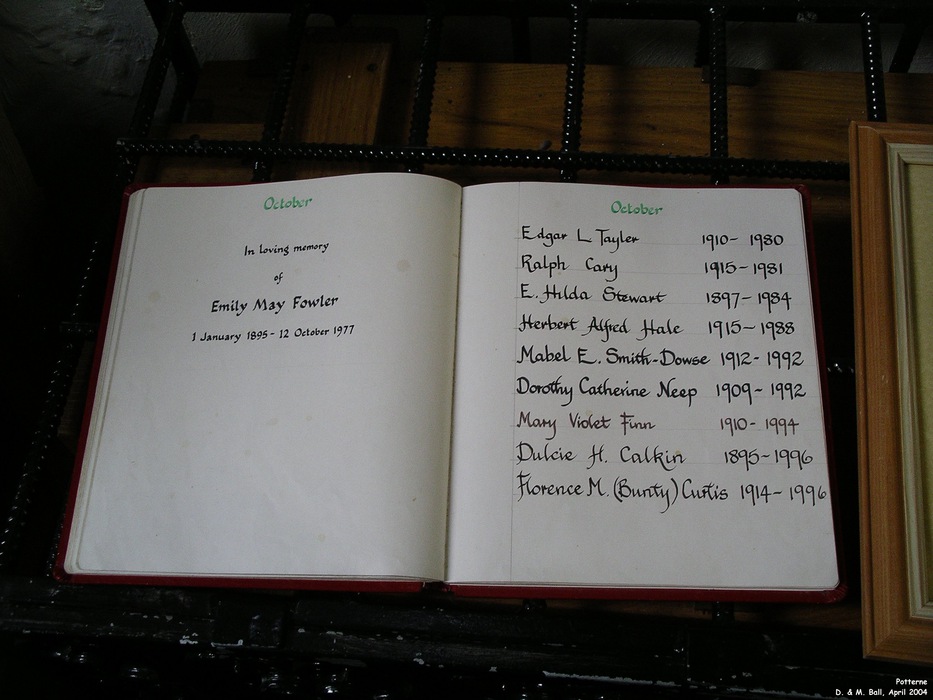 October
In loving memory
of
Emily May Fowler
1 January 1895 - 12 October 1977
October
Edgar L Tayler 1910 - 1980
Ralph Cary 1915 - 1981
E. Hilda Stewart 1897 - 1984
Herbert Alfred Hale 1915 - 1988
Mabel E. Smith-Dowse 1912 - 1992
Dorothy Catherine Neep 1909 - 1992
Mary Violet Finn 1910 - 1994
Dulcie H. Calkin 1895 - 1996
Florence M. (Bunty) Curtis 1914 - 1996
Potterne
D. & M. Ball, April 2004